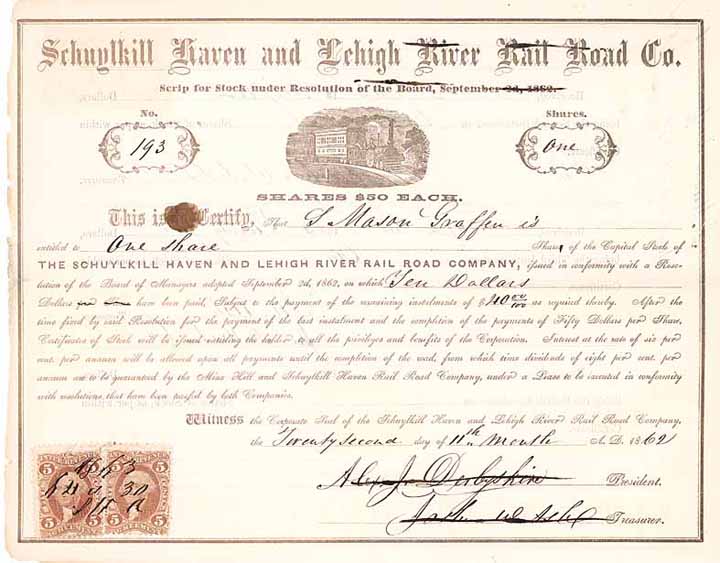 Schuylkill Haven and Lehigh River Rail Road Co.
Scrip for Stock under Resolution of the Board, September 2d, 1862.
No. Shares.
193 One
SHARES $50 EACH.
This is to Certify, that S Mason Graffen is
entitled to One share Shares of the Capital Stock of
THE SCHUYLKILL HAVEN AND LEHIGH RIVER RAIL ROAD COMPANY, issued in conformity with a Reso-
lution of the Board of Managers adopted September 2d, 1862, on which Ten Dollars
Dollars per share have been paid, Subject to the payment of the remaining instalments of $40 00/100 as required thereby. After the
time fixed by said Resolution for the payment of the last instalment and the completion of the payments of Fifty Dollars per Share,
Certificates of Stock will be issued entitling the holder to all the privileges and benefits of the Corporation. Interest at the rate of six per
cent. per annum will be allowed upon all payments until the completion of the road, from which time dividends of eight per cent. per
annum are to be guaranteed by the Mine Hill and Schuylkill Haven Rail Road Company, under a Lease to be executed in conformity
with resolutions that have been passed by both Companies.
Witness the Corporate Seal of the Schuylkill Haven and Lehigh River Rail Road Company,
the Twenty second day of 11th Month A. D. 1862
Alex J. Derbyshire President.
Treasurer.
5 5 5 5
5 5 5 5